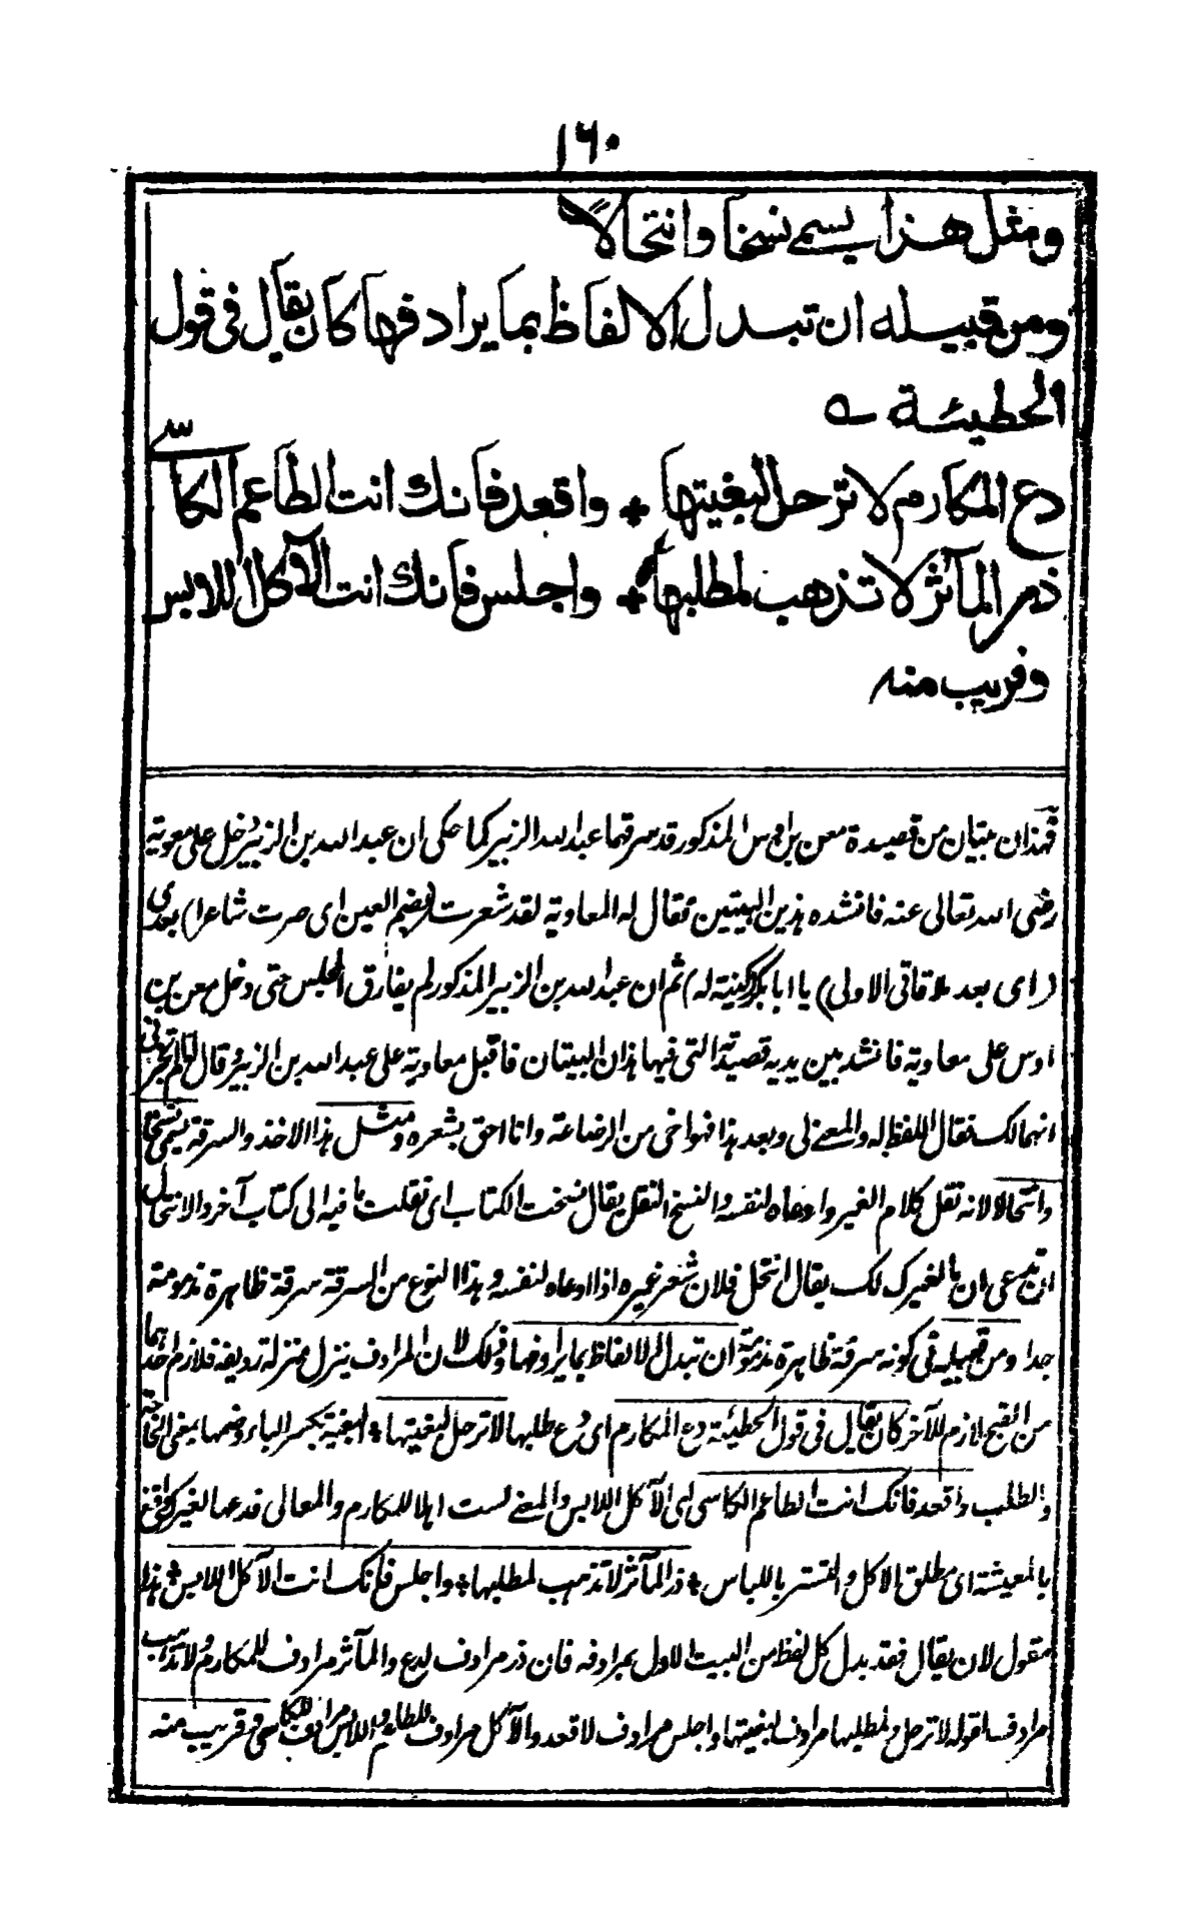 ١٦٠
ومثل هذا يسمے نسخا وانتحالاً
ومن قبيله ان تبدل الالفاظ بما يرادفها كان يقال فى قول
الحطيئة ہ
دع المكارم لا ترحل لبغيتها + واقعد فانك انت الطاعم الكاسے
ذر المآثر لا تذهب لمطلبها + واجلس فانك انت الآكل اللابس
وقريب منه
فهذان بيتان من قصيدة معن بن اوس المذكور قد سرقهما عبد الله الزبير كما حكى ان عبد الله بن الزبير دخل على معوية
رضى الله تعالى عنه فانشده هذين البيتين فقال له المعاوية لقد شعرت (بضم العين اى صرت شاعرا) بعدى
(اى بعد ملاقاتى الاولى) يا ابا بكر (كنيته له) ثم ان عبد الله بن الزبير المذكور لم يفارق المجلس حتى دخل معن بن
اوس على معاوية فانشد بين يديه قصيدته التى فيها هذان البيتان فاقبل معاوية على عبد الله بن الزبير وقال له الم تخبرنى
انهما لك فقال اللفظ له والمعنے لى وبعد هذا فهو اخى من الرضاعة وانا احق بشعره ومثل هذا الاخذ والسرقة يسمى نسخا
وانتحالا لانه نقل كلام الغير وادعاه لنفسه والنسخ النقل يقال نسخت الكتاب اى نقلت ما فيه الى كتاب آخر والانتحال
ان تدعى ان ما لغيرك لك يقال انتحل فلان شعر غيره اذا ادعاه لنفسه وهذا النوع من السرقة سرقة ظاهرة مذمومة
جدا ومن قبيله فى كونه سرقة ظاهرة مذمومة ان تبدل الالفاظ بما يرادفها وذلك لان المرادف ينزل منزلة رديفه فلازم احدهما
من القبح لازم للآخر كان يقال فى قول الحطيئة دع المكارم اى دع طلبها لا ترحل لبغيتها + البغية بكسر الباء وضمها بمعنى الحاجة
والطلب واقعد فانك انت الطاعم الكاسى اى الآكل اللابس والمعنے لست اهلا للمكارم والمعالى فدعها لغيرك واقنع
بالمعيشة اى مطلق الاكل والتستر باللباس + ذر المآثر لا تذهب لمطلبها + واجلس فانك انت الآكل اللابس + هذا
مقول لان يقال فقد بدل كل لفظ من البيت الاول بمرادفه فان ذر مرادف لدع والمآثر مرادف للمكارم ولا تذهب
مرادف لقوله لا ترحل ولمطلبها مرادف لبغيتها واجلس مرادف لاقعد والآكل مرادف للطاعم واللابس مرادف للكاسى وقريب منه